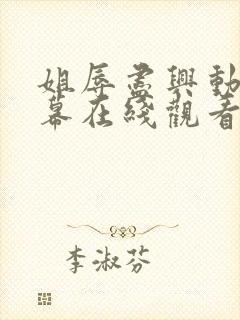 姐辱盡興動
幕在綫觀看
李淑芬